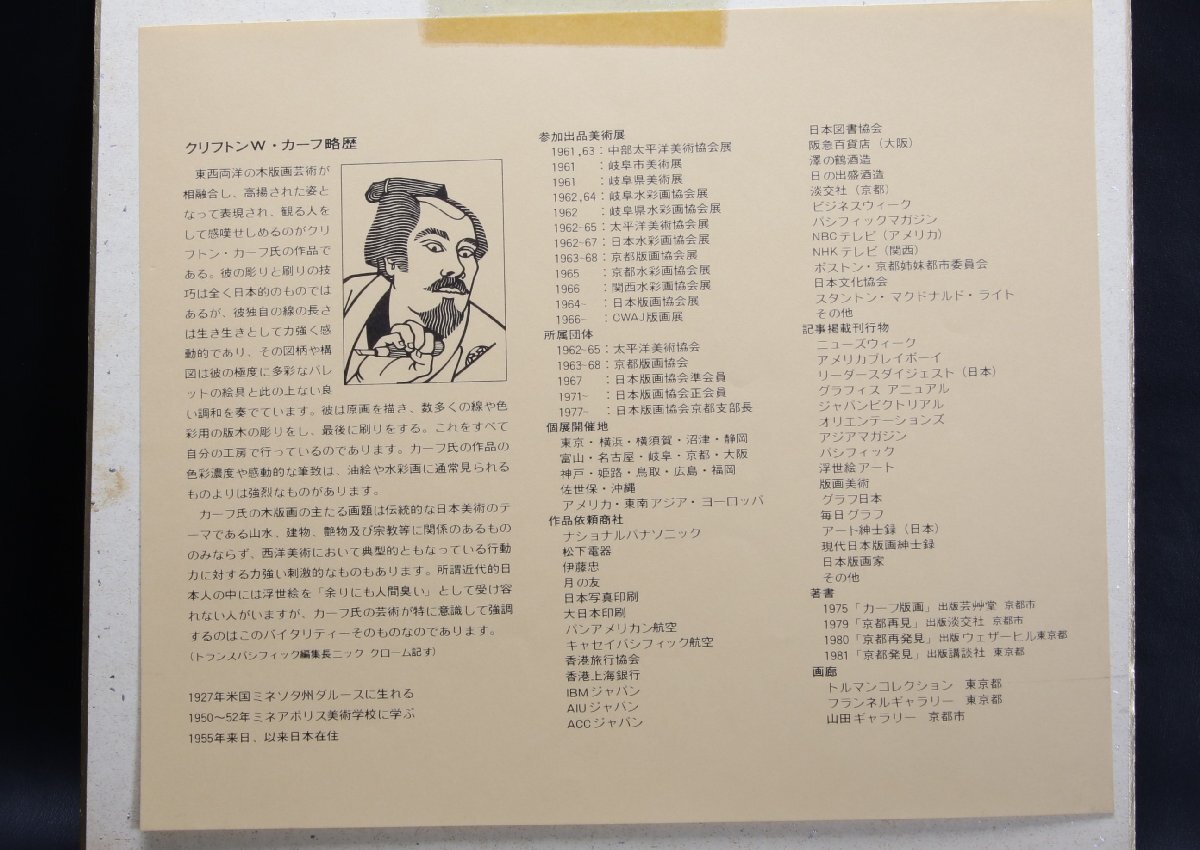 クリフトンW・カーフ略歴
東西両洋の木版画芸術が
相融合し、高揚された姿と
なって表現され、観る人を
して感嘆せしめるのがクリ
フトン・カーフ氏の作品で
ある。彼の彫りと刷りの技
巧は全く日本的のものでは
あるが、彼独自の線の長さ
は生き生きとして力強く感
動的であり、その図柄や構
図は彼の極度に多彩なパレ
ットの絵具と此の上ない良
い調和を奏でています。彼は原画を描き、数多くの線や色
彩用の版木の彫りをし、最後に刷りをする。これをすべて
自分の工房で行っているのであります。カーフ氏の作品の
色彩濃度や感動的な筆致は、油絵や水彩画に通常見られる
ものよりは強烈なものがあります。
カーフ氏の木版画の主たる画題は伝統的な日本美術のテ
ーマである山水、建物、艶物及び宗教等に関係のあるもの
のみならず、西洋美術において典型的ともなっている行動
力に対する力強い刺激的なものもあります。所謂近代的日
本人の中には浮世絵を「余りにも人間臭い」として受け容
れない人がいますが、カーフ氏の芸術が特に意識して強調
するのはこのバイタリティーそのものなのであります。
(トランスパシフィック編集長ニック クローム記す)
1927年米国ミネソタ州ダルースに生れる
1950〜52年ミネアポリス美術学校に学ぶ
1955年来日、以来日本在住
参加出品美術展
1961,63：中部太平洋美術協会展
1961　：岐阜市美術展
1961　：岐阜県美術展
1962,64：岐阜水彩画協会展
1962　：岐阜県水彩画協会展
1962-65：太平洋美術協会展
1962-67：日本水彩画協会展
1963-68：京都版画協会展
1965　：京都水彩画協会展
1966　：関西水彩画協会展
1964-　：日本版画協会展
1966-　：CWAJ版画展
所属団体
1962-65：太平洋美術協会
1963-68：京都版画協会
1967　：日本版画協会準会員
1971-　：日本版画協会正会員
1977-　：日本版画協会京都支部長
個展開催地
東京・横浜・横須賀・沼津・静岡
富山・名古屋・岐阜・京都・大阪
神戸・姫路・鳥取・広島・福岡
佐世保・沖縄
アメリカ・東南アジア・ヨーロッパ
作品依頼商社
ナショナルパナソニック
松下電器
伊藤忠
月の友
日本写真印刷
大日本印刷
パンアメリカン航空
キャセイパシフィック航空
香港旅行協会
香港上海銀行
IBMジャパン
AIUジャパン
ACCジャパン
日本図書協会
阪急百貨店（大阪）
澤の鶴酒造
日の出盛酒造
淡交社（京都）
ビジネスウィーク
パシフィックマガジン
NBCテレビ（アメリカ）
NHKテレビ（関西）
ボストン・京都姉妹都市委員会
日本文化協会
スタントン・マクドナルド・ライト
その他
記事掲載刊行物
ニューズウィーク
アメリカプレイボーイ
リーダースダイジェスト（日本）
グラフィス アニュアル
ジャパンピクトリアル
オリエンテーションズ
アジアマガジン
パシフィック
浮世絵アート
版画美術
グラフ日本
毎日グラフ
アート紳士録（日本）
現代日本版画紳士録
日本版画家
その他
著書
1975「カーフ版画」出版芸艸堂 京都市
1979「京都再見」出版淡交社 京都市
1980「京都再発見」出版ウェザーヒル東京都
1981「京都発見」出版講談社 東京都
画廊
トルマンコレクション　東京都
フランネルギャラリー　東京都
山田ギャラリー　京都市